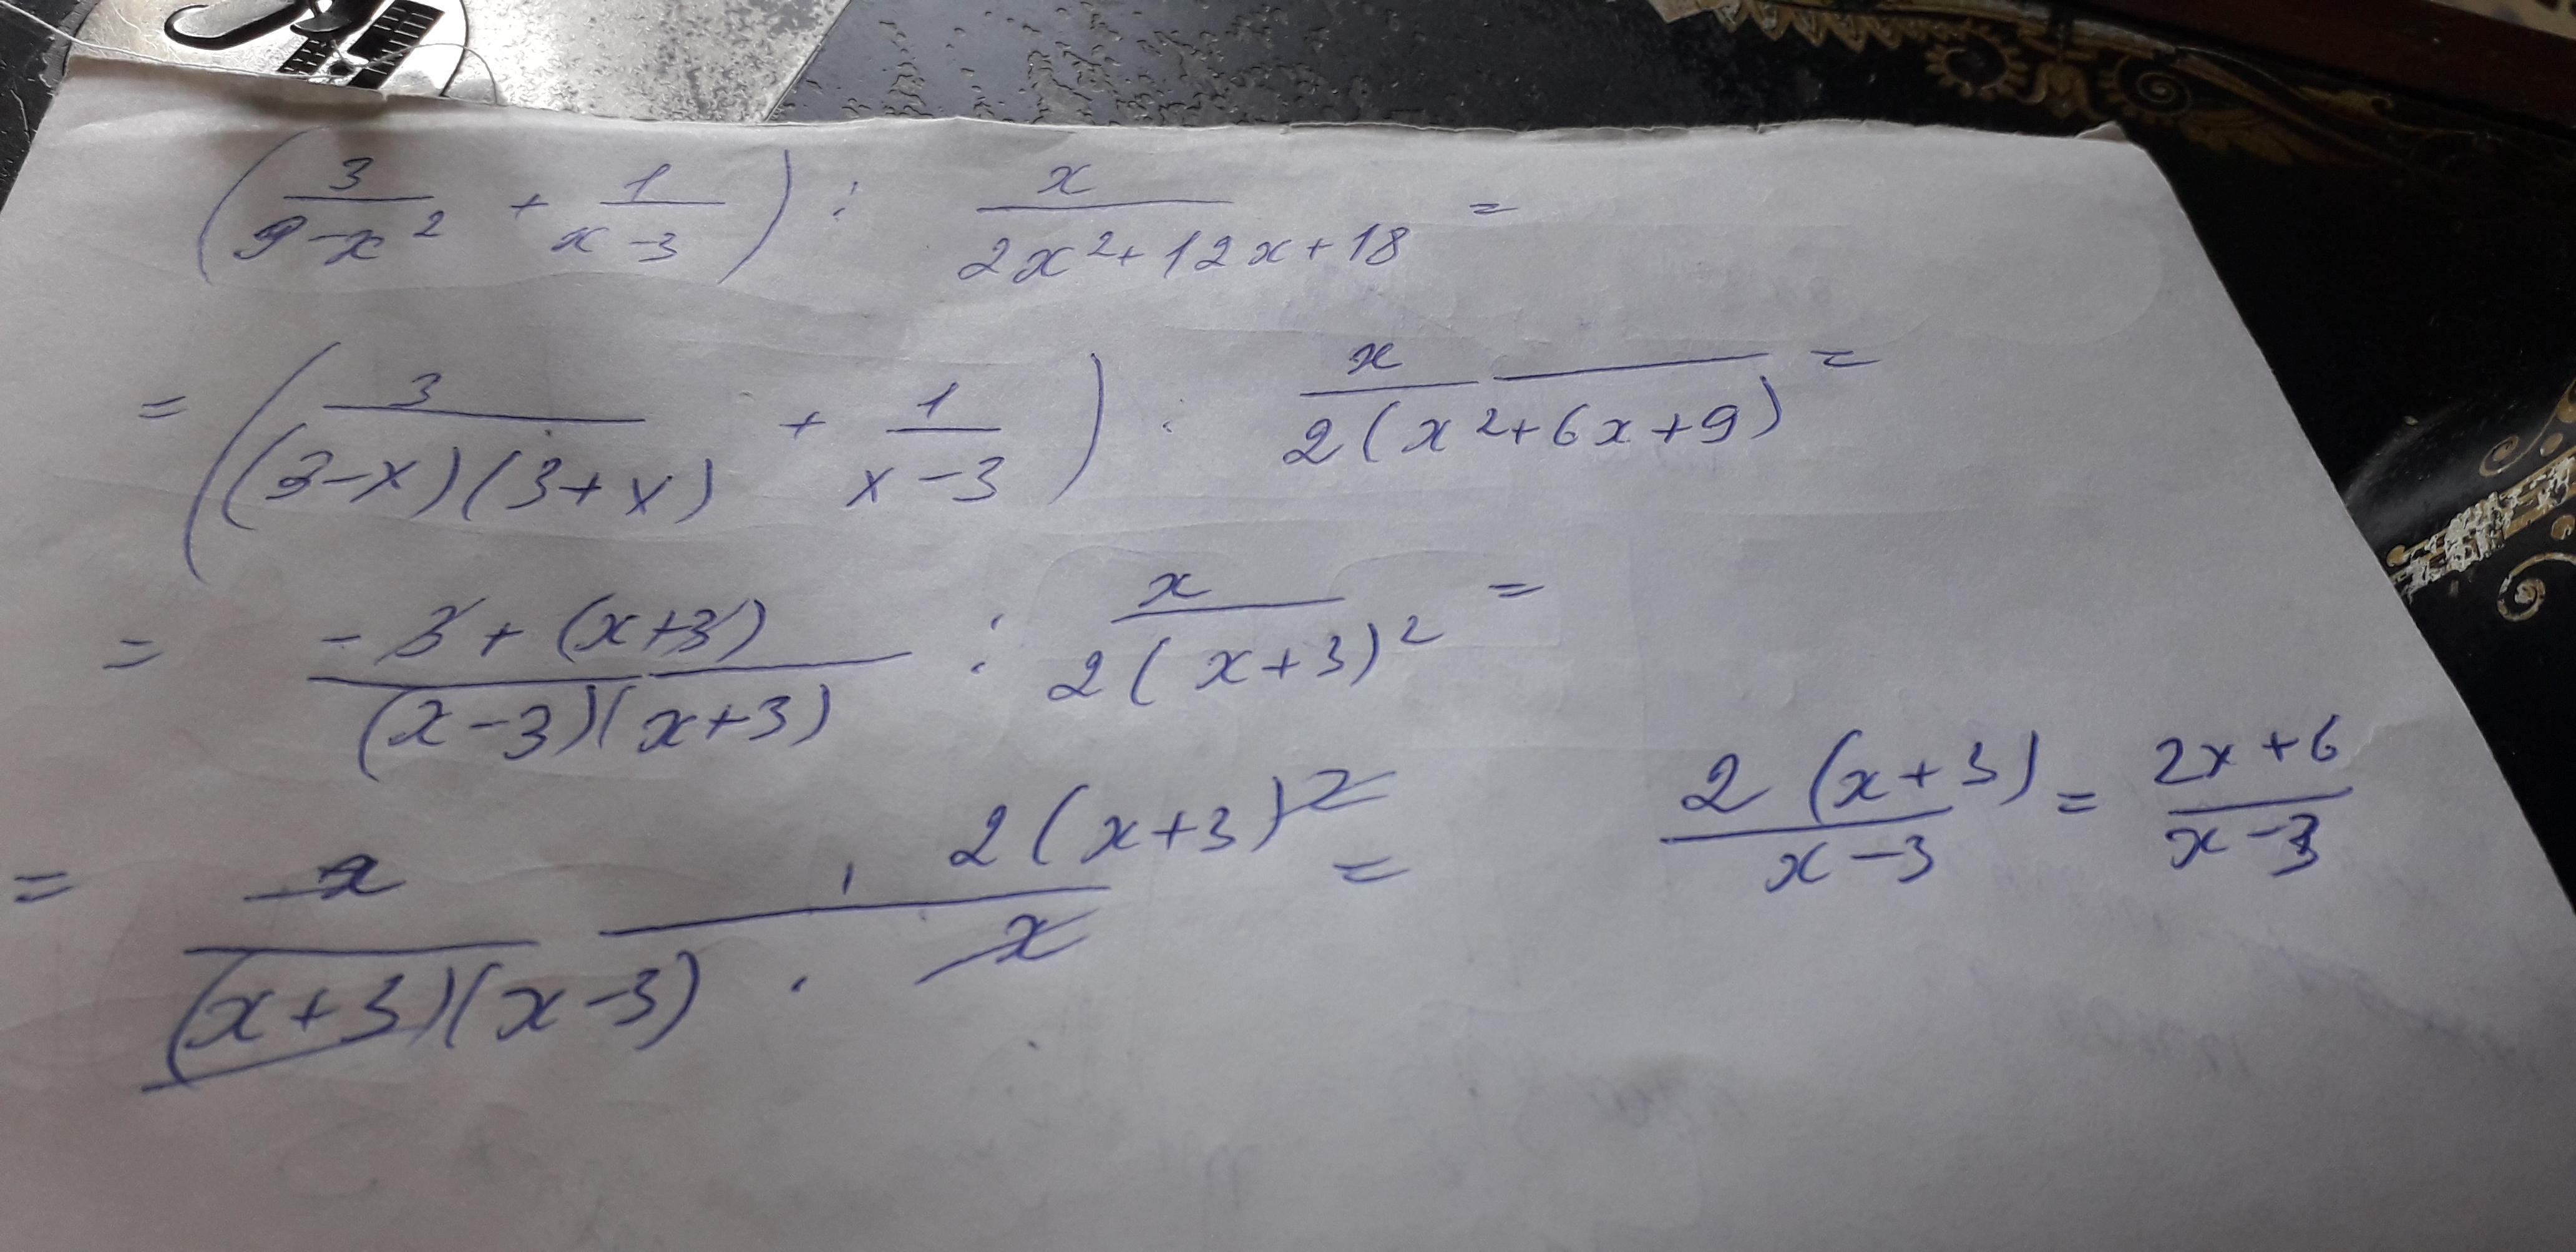 (3/(9-x²) + 1/(x-3)) : x/(2x²+12x+18) =
= (3/((3-x)(3+x)) + 1/(x-3)) : x/(2(x²+6x+9)) =
= (-3+(x+3))/((x-3)(x+3)) : x/(2(x+3)²) =
= (x · 2(x+3)²)/((x+3)(x-3) · x) = 2(x+3)/(x-3) = (2x+6)/(x-3)